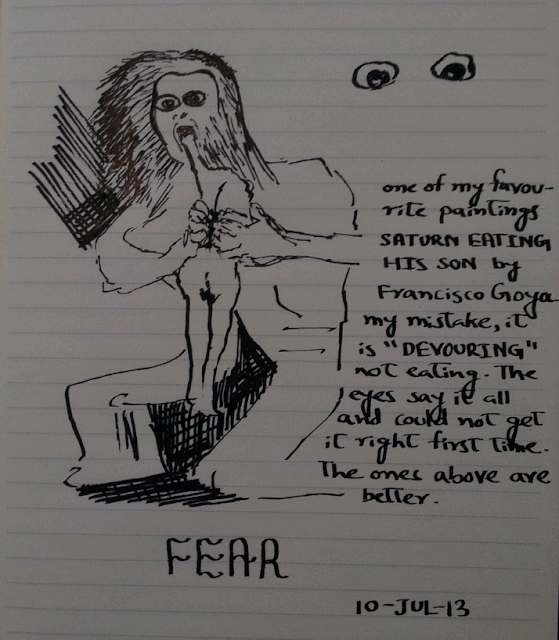 one of my favou-
rite paintings
SATURN EATING
HIS SON by
Francisco Goya
my mistake, it
is "DEVOURING"
not eating. The
eyes say it all
and could not get
it right first time.
The ones above are
better.
FEAR
10-JUL-13